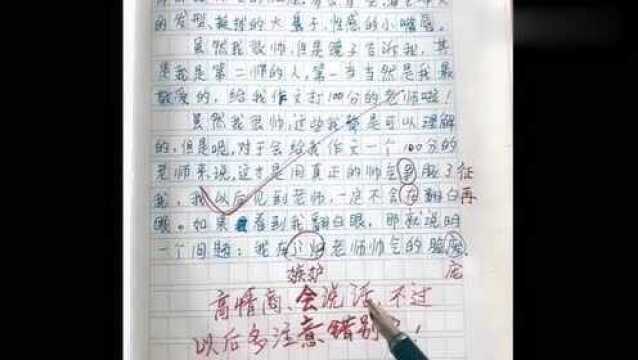 的发型、挺拔的大鼻子、性感的小嘴唇。
虽然我很帅,但是镜子告诉我,其
是我是第二帅的人,第一当当然是我最
敬爱的,给我作文打100分的老师啦!
虽然我很帅,这些我
是可以理解
的,但是呢,对于会给我作文一个100分的
老师来说,这才是用真正的帅气到服了征
我,我以后见到老师,一定不会在翻白再
眼。如果看到我翻白眼,那就说明
一个问题:我在
老师帅气的脸
嫉妒
庞
高情商、会说话,不过
以后多注意错别字!